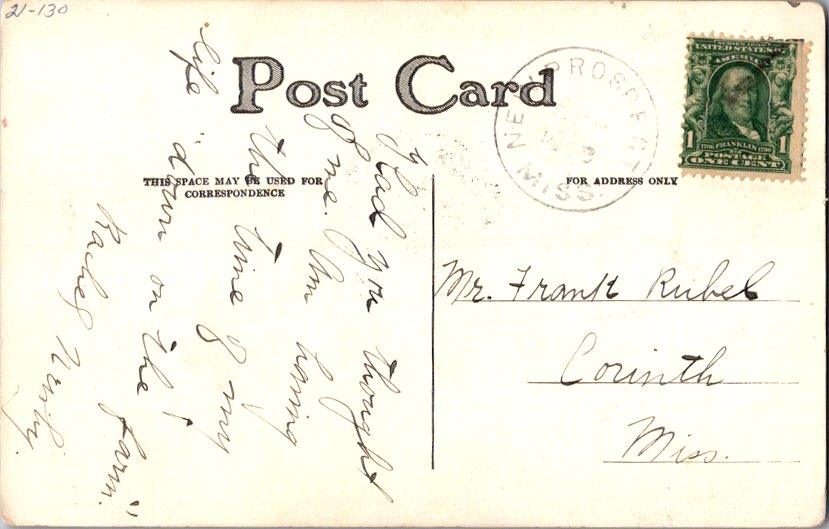 21-130
Post Card
THIS SPACE MAY BE USED FOR
CORRESPONDENCE
FOR ADDRESS ONLY
NEW PROSPECT
MISS.
SERIES 1902
UNITED STATES OF
AMERICA
1 1
1706 FRANKLIN 1790
POSTAGE
ONE CENT
Mr. Frank Rubel
Corinth
Miss.
Glad you thought
of me. Am having
the time of my
life "down on the farm."
Rachel